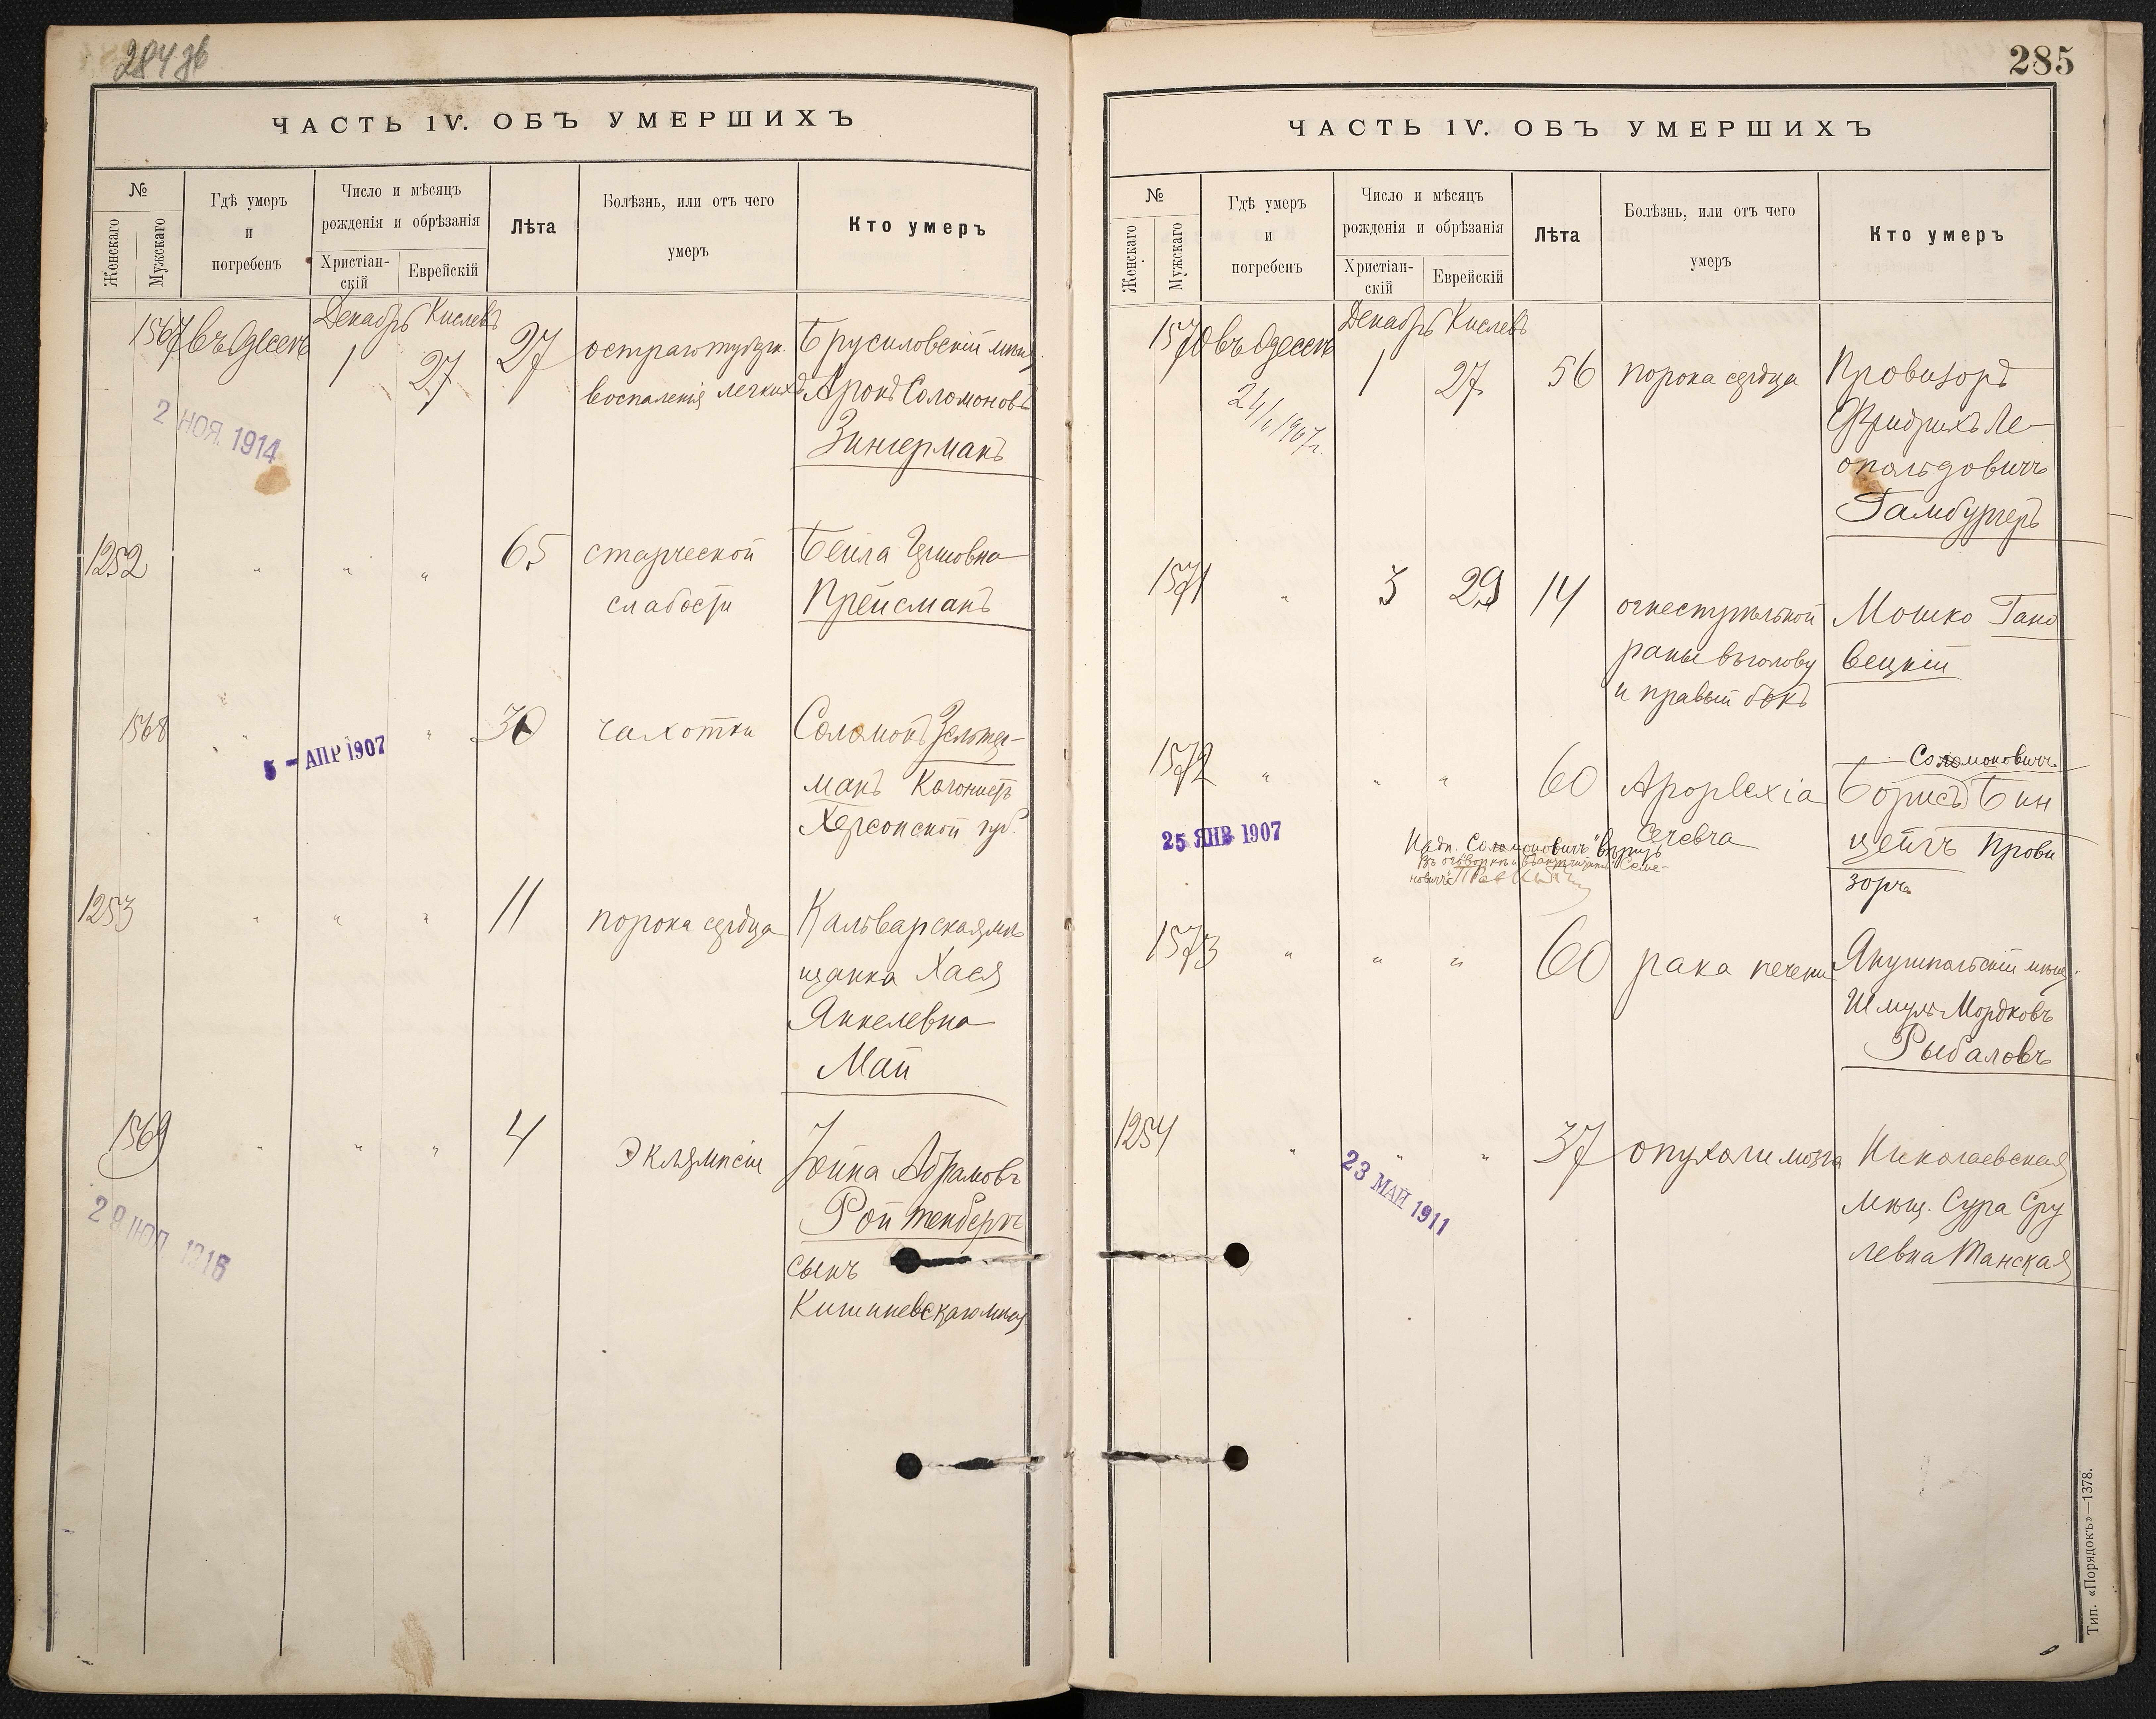 284 об
ЧАСТЬ IV. ОБЪ УМЕРШИХЪ
№
Женскаго
Мужскаго
Гдѣ умеръ
и
погребенъ
Число и мѣсяцъ
рожденія и обрѣзанія
Христіан-
скій
Еврейскій
Лѣта
Болѣзнь, или отъ чего
умеръ
Кто умеръ
Декабрь Кислевъ
1567 въ Одессѣ 1 27 27 остраго туберк. Брусиловскій мѣщ.
воспаленія легкихъ Аронъ Соломоновъ
Зингерманъ
2 НОЯ. 1914
1252 " " " 65 старческой Бейла
слабости Прейсманъ
1568 " " 30 чахотки Соломонъ Зельцер-
манъ Колонистъ
Херсонской губ.
5 - АПР 1907
1253 " " " 11 порока сердца Кальварская мѣ
щанка Хася
Янкелевна
Май
1569 " " " 4 Эклямпсіи Іойна Абрамовъ
Ройтенбергъ
сынъ
Кишиневскаго мѣщ.
2 ІЮЛ 1916
285
ЧАСТЬ IV. ОБЪ УМЕРШИХЪ
№
Женскаго
Мужскаго
Гдѣ умеръ
и
погребенъ
Число и мѣсяцъ
рожденія и обрѣзанія
Христіан-
скій
Еврейскій
Лѣта
Болѣзнь, или отъ чего
умеръ
Кто умеръ
Декабрь Кислевъ
1570 въ Одессѣ 1 27 56 порока сердца Провизоръ
Фридрихъ Ле-
опольдовичъ
Гамбургеръ
24/I 1907г.
1571 " 3 29 14 огнестрѣльной Мошко Гано
раны въ голову вецкій
и правый бокъ
Соломоновичъ
1572 " " " 60 Apoplexia Борисъ Бин
cerebra цейгъ Прови
зоръ
25 ЯНВ 1907
Надп. "Соломоновичъ" вѣрить
1573 " " " 60 рака печени Янушпольскій мѣщ.
Шмуль Мордковъ
Рыбаловъ
1254 " " " 37 опухоли мозга Николаевская
мѣщ. Сура Сру
левна Танская
23 МАЙ 1911
Тип. «Порядокъ»—1378.